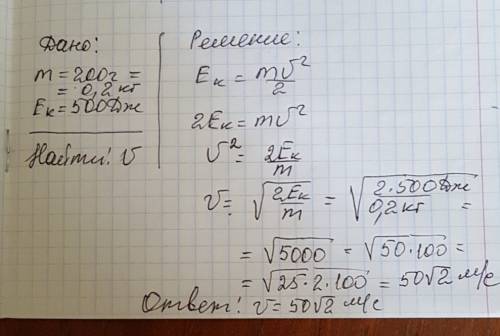 Дано:
m = 200г =
= 0,2 кг
Eк = 500 Дж
Найти: υ
Решение:
Eк = mυ²/2
2Eк = mυ²
υ² = 2Eк/m
υ = √(2Eк/m) = √(2·500Дж/0,2кг) =
= √5000 = √50·100 =
= √25·2·100 = 50√2 м/с
Ответ: υ = 50√2 м/с